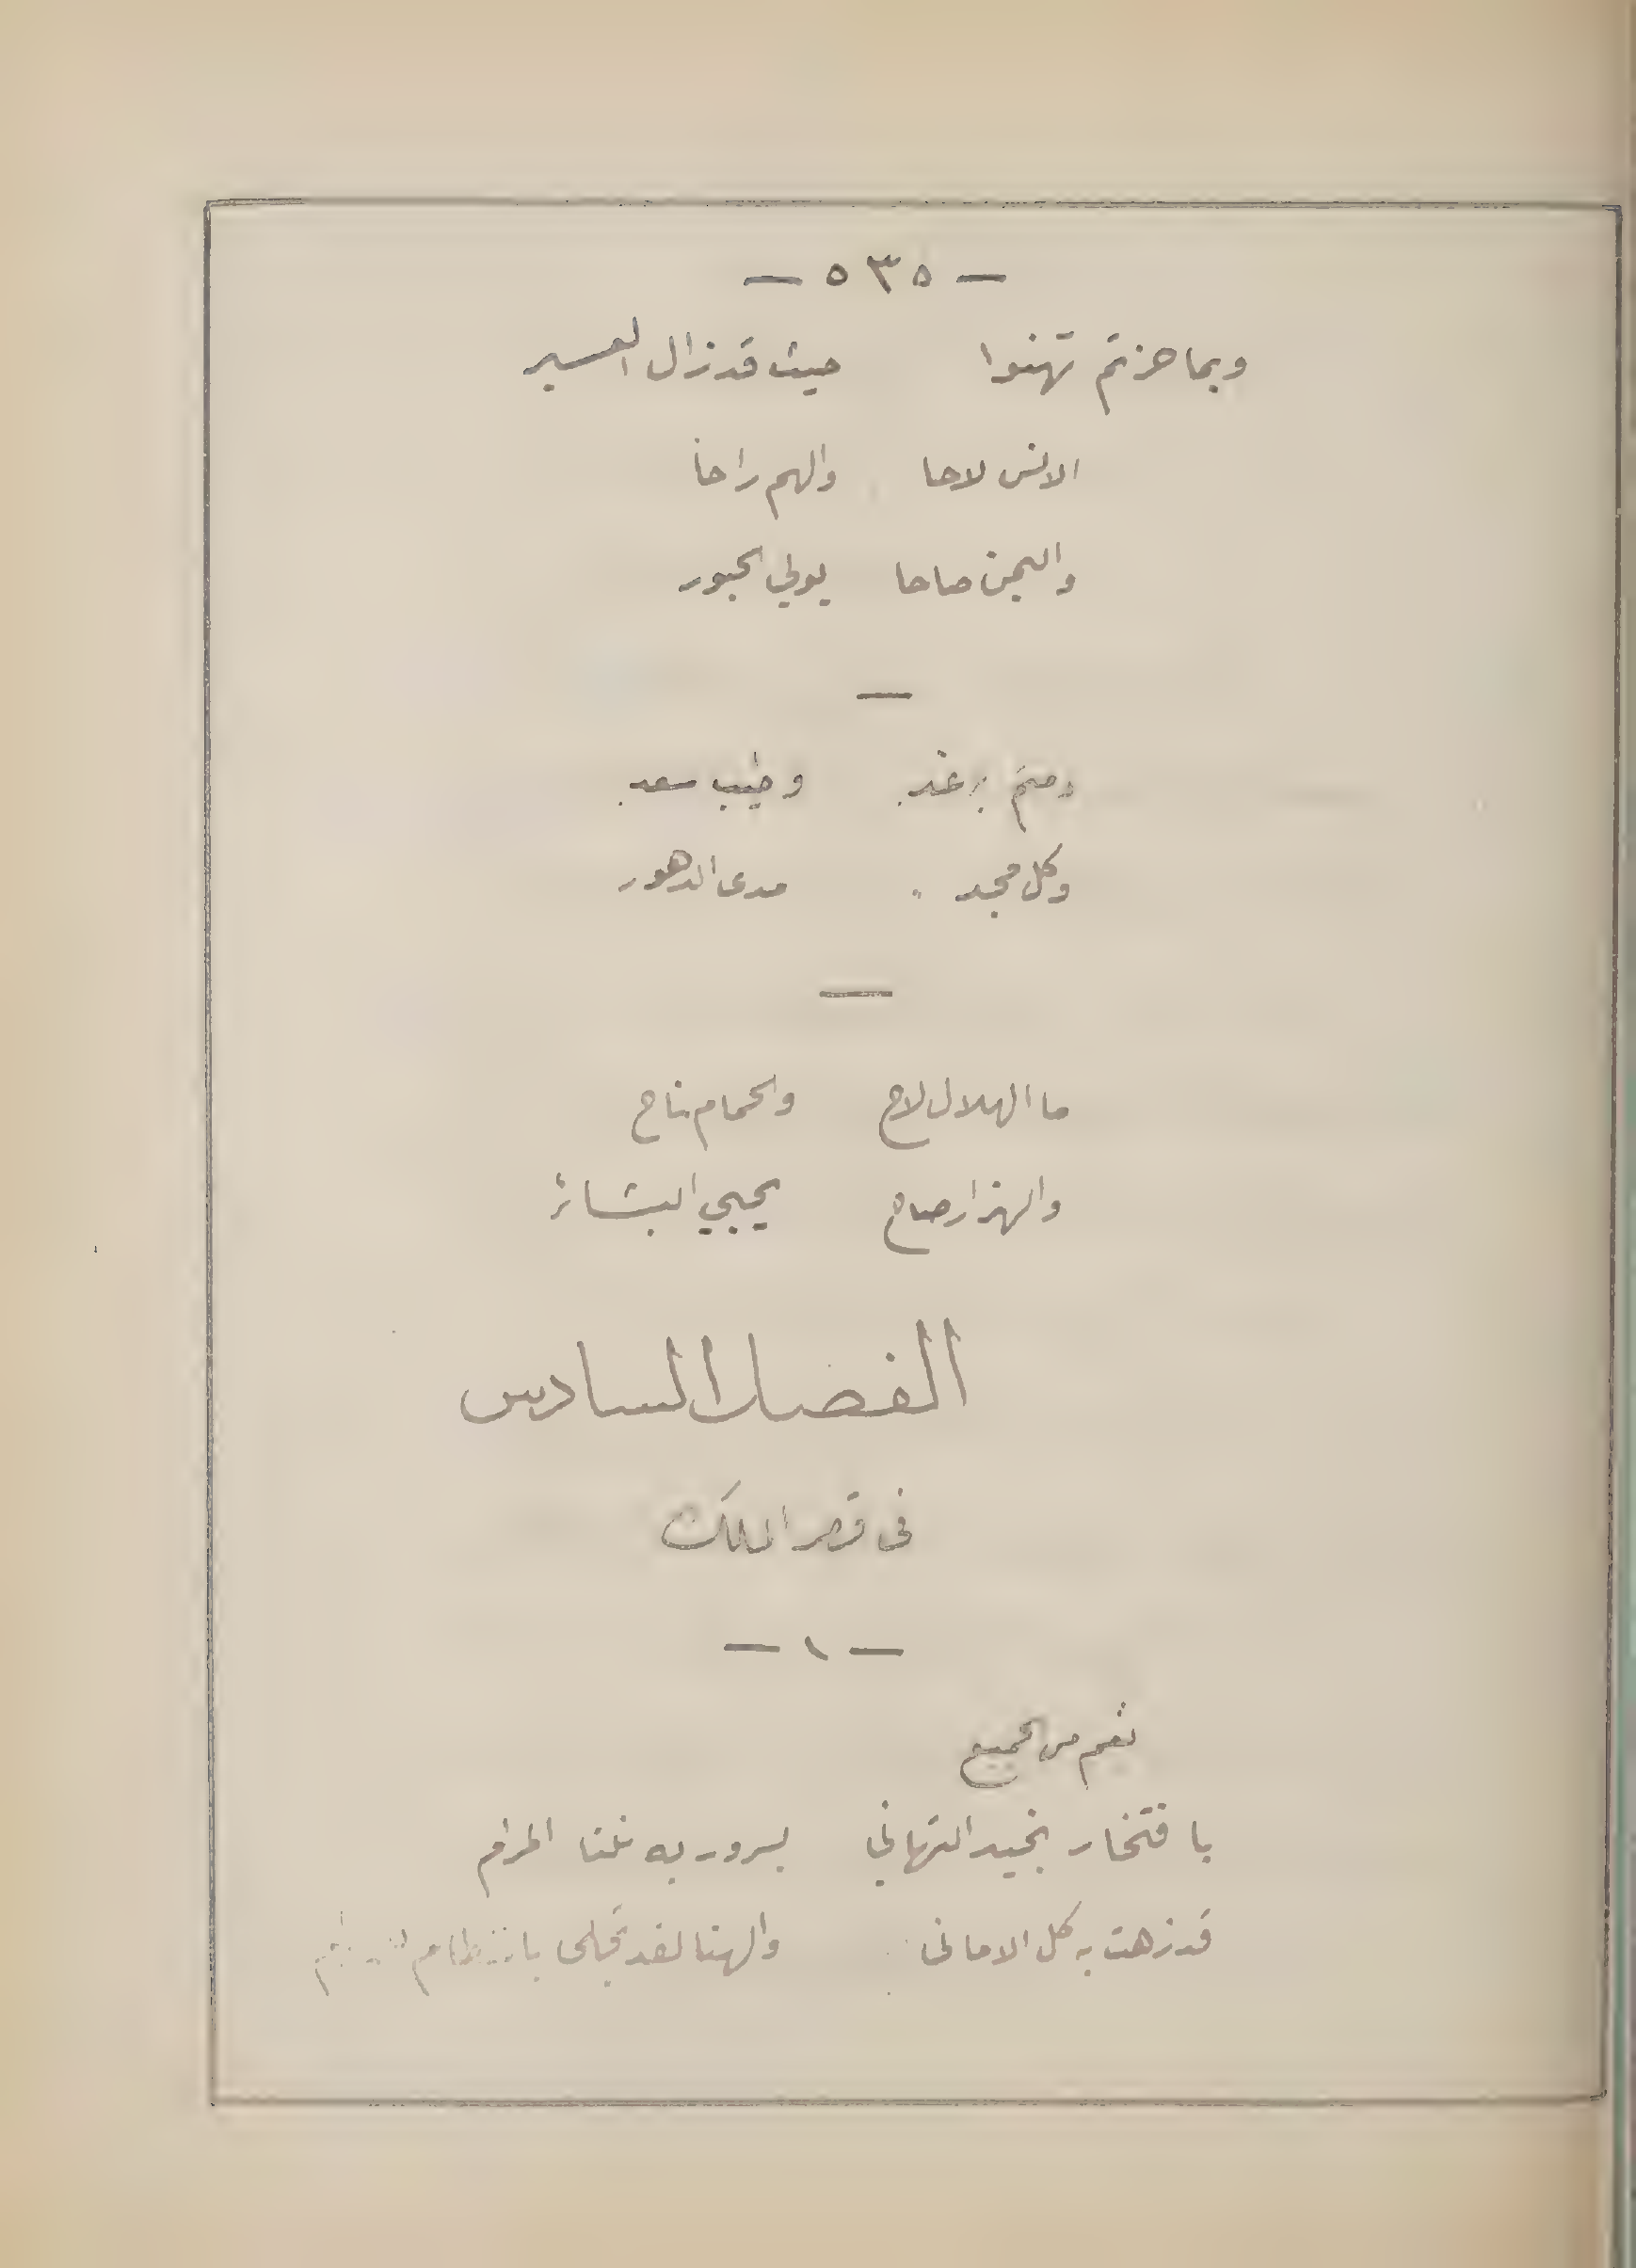 — ٥٣٥ —
وبما حزتم تهنوا حيث قد زال العسير
الانس لاحا والهم راحا
واليمن صاحا يولي الحبور
—
دمتم برغد وطيب سعد
وكل مجد مدى الدهور
—
ما الهلال لاح والحمام ناح
والهزار صاح يحيي البشائر
الفصل السادس
فى قصر الملك
— ١ —
نغم من الجميع
بافتخار نجيد التهاني بسرور به نلنا المرام
قد زهت به كل الامانى والهنا لقد تجلى بانتظام